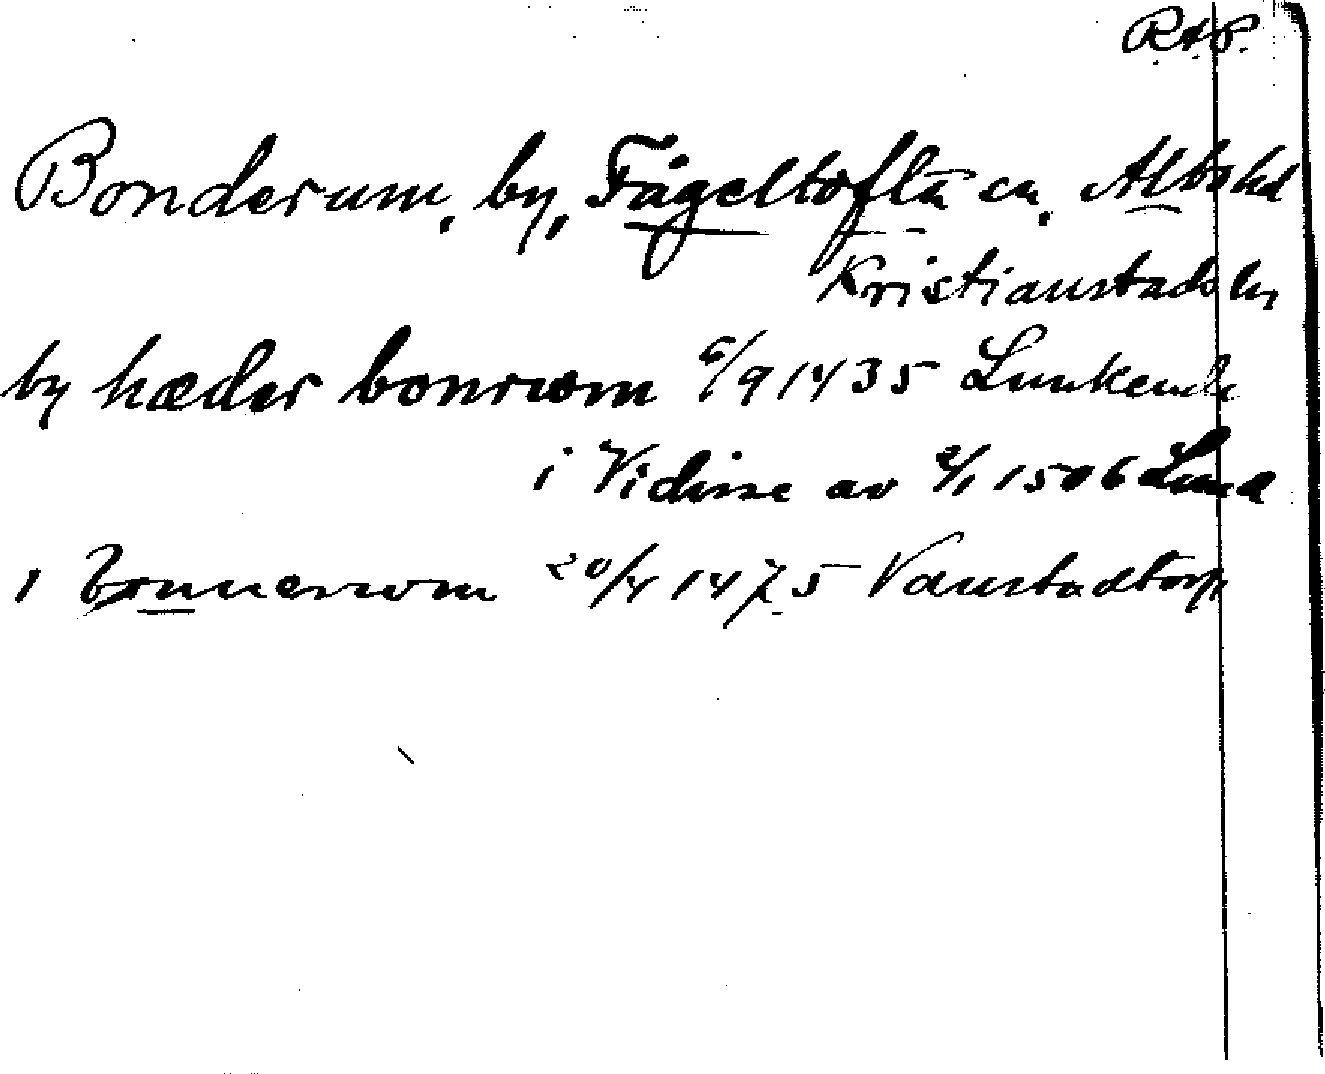 RAP.
Bonderum, by, Fågeltofta sn, Albo hd
Kristianstads ln
by hæder bonrwm 6/9 1435 Lunkende
i Vidisse av 2/1 1506 Lund
i Bonnerwm 20/4 1475 Vanstadtorp